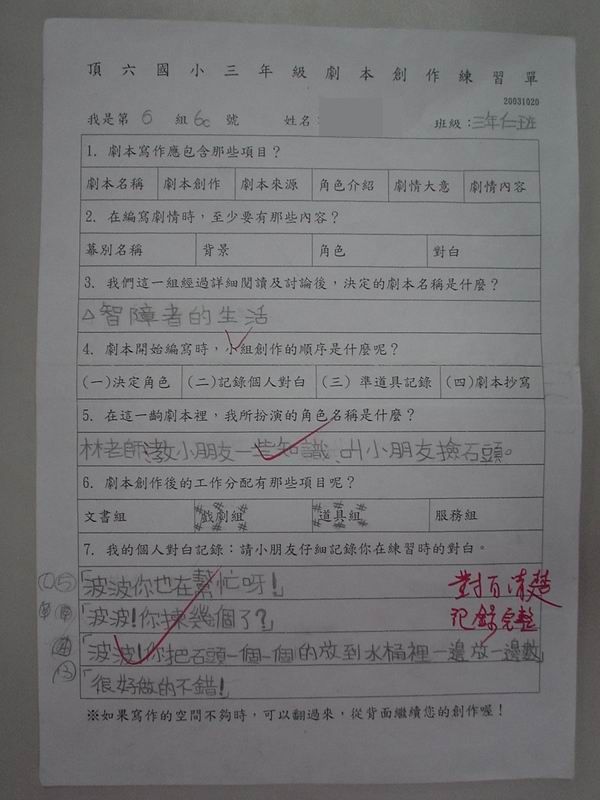 頂六國小三年級劇本創作練習單
20031020
我是第 6 組 6c 號 姓名: 班級:三年仁班
1. 劇本寫作應包含那些項目?
劇本名稱 劇本創作 劇本來源 角色介紹 劇情大意 劇情內容
2. 在編寫劇情時,至少要有那些內容?
幕別名稱 背景 角色 對白
3. 我們這一組經過詳細閱讀及討論後,決定的劇本名稱是什麼?
△智障者的生活
4. 劇本開始編寫時,小組創作的順序是什麼呢?
(一)決定角色 (二)記錄個人對白 (三) 準道具記錄 (四)劇本抄寫
5. 在這一齣劇本裡,我所扮演的角色名稱是什麼?
林老師教小朋友一些知識 叫小朋友撿石頭。
6. 劇本創作後的工作分配有那些項目呢?
文書組 戲劇組 道具組 服務組
7. 我的個人對白記錄:請小朋友仔細記錄你在練習時的對白。
「波波你也在幫忙呀!」
「波波!你揀幾個了?」
「波波!你把石頭一個一個的放到水桶裡一邊放一邊數」
「很好做的不錯!」
對白清楚
記錄完整
※如果寫作的空間不夠時,可以翻過來,從背面繼續您的創作喔!